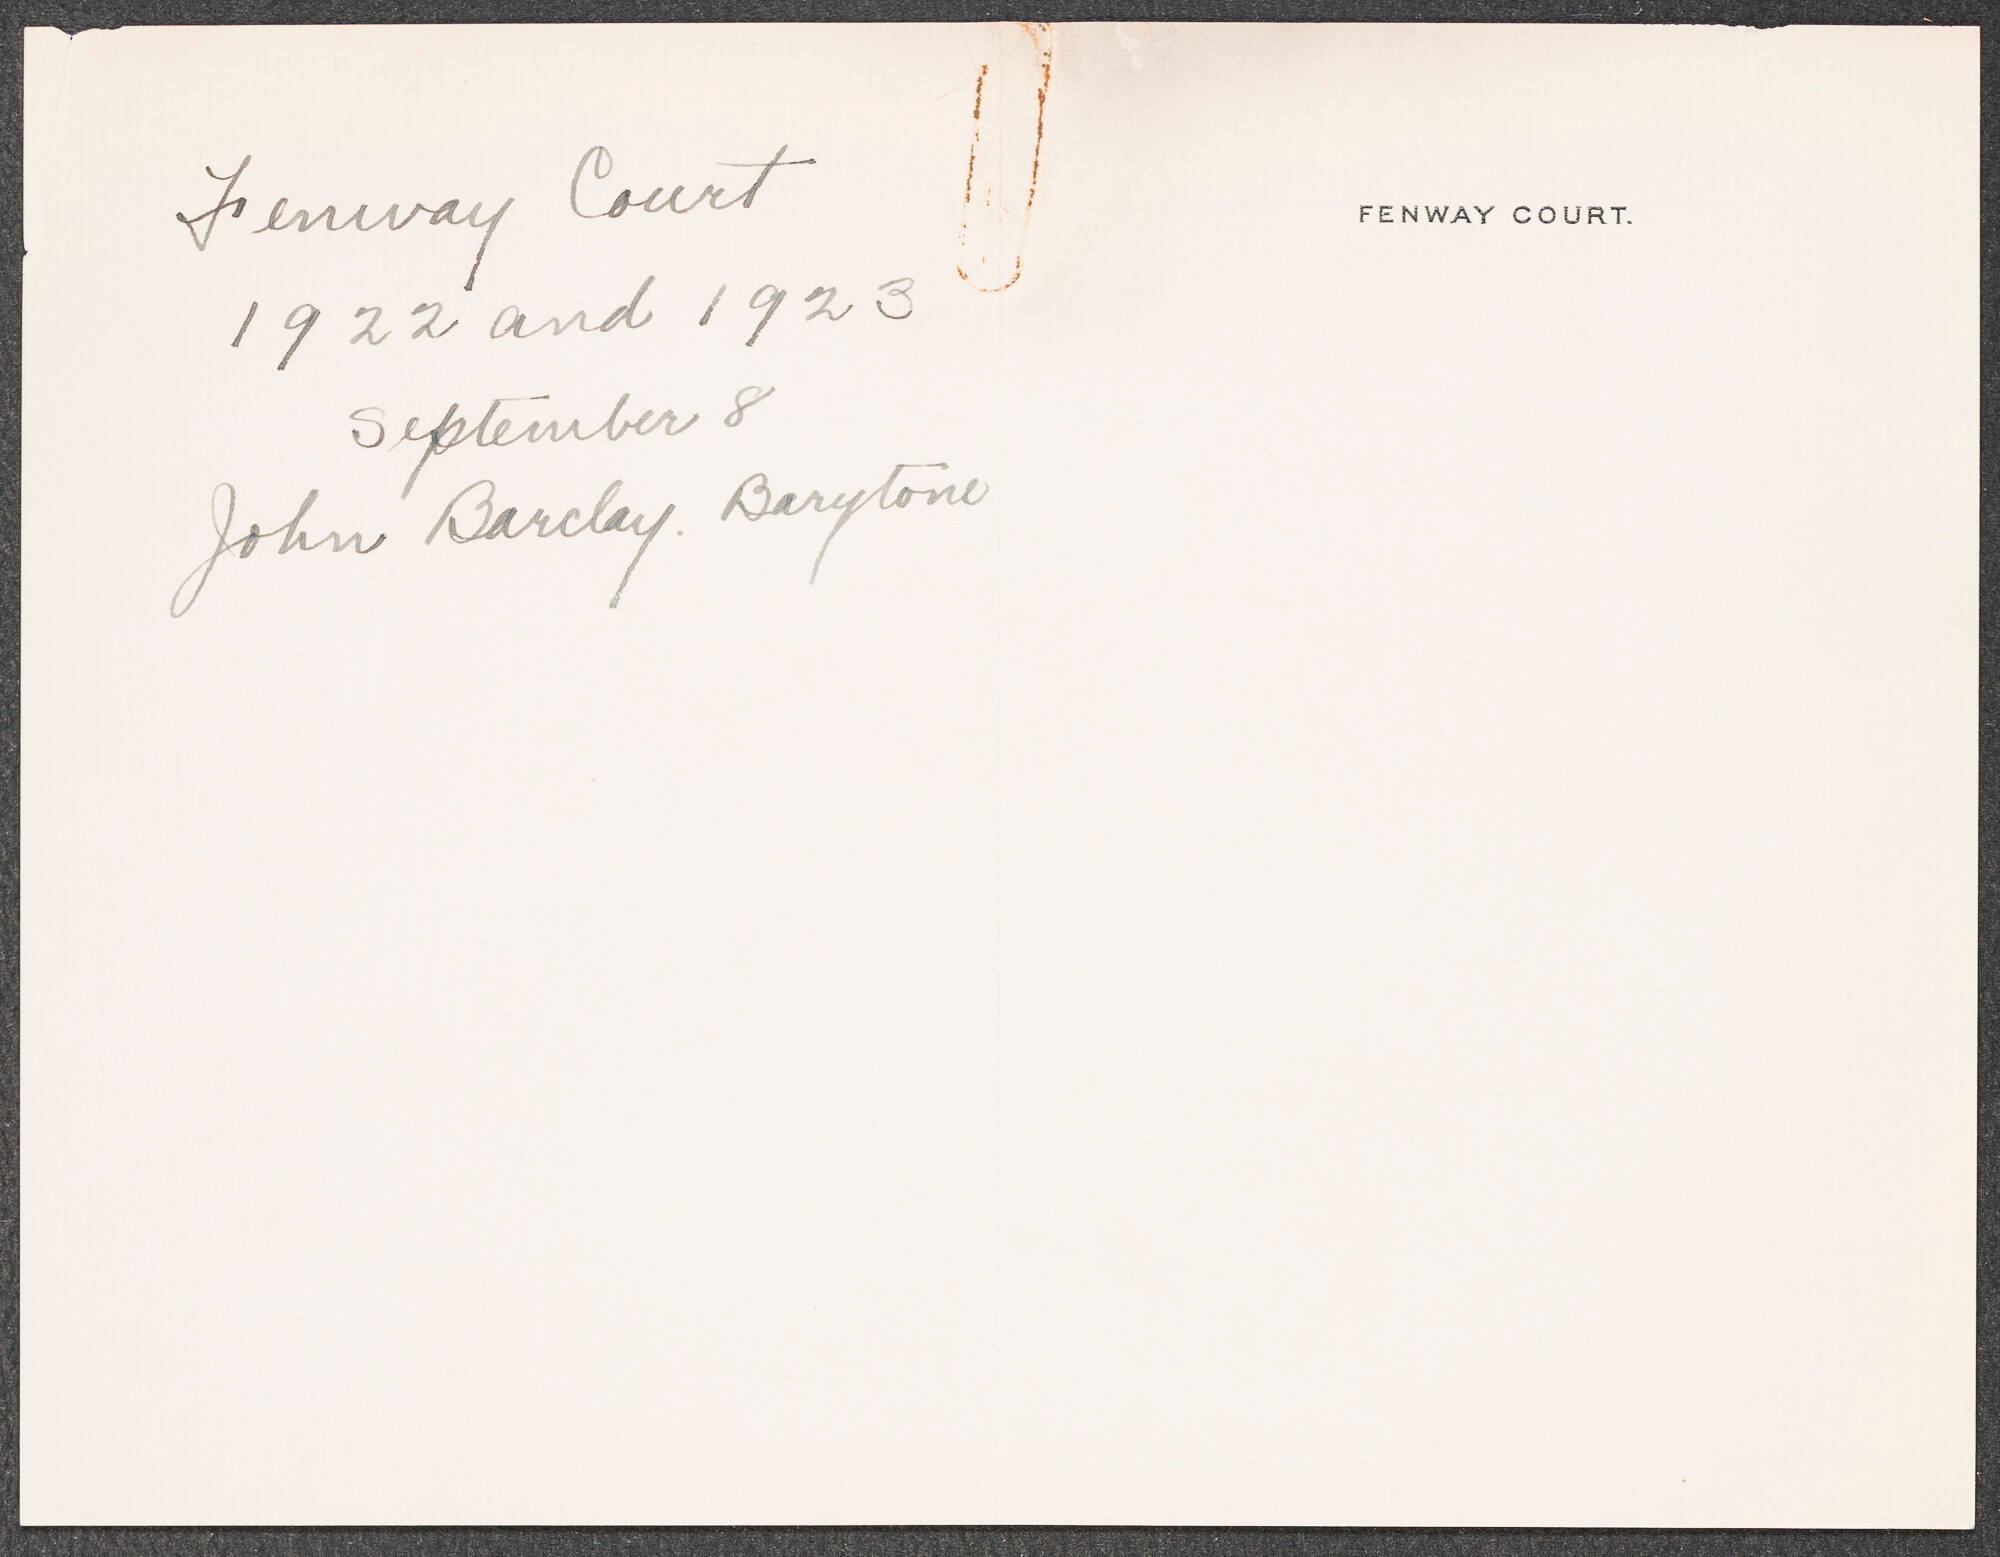 Fenway Court
1922 and 1923
September 8
John Barclay. Barytone
FENWAY COURT.